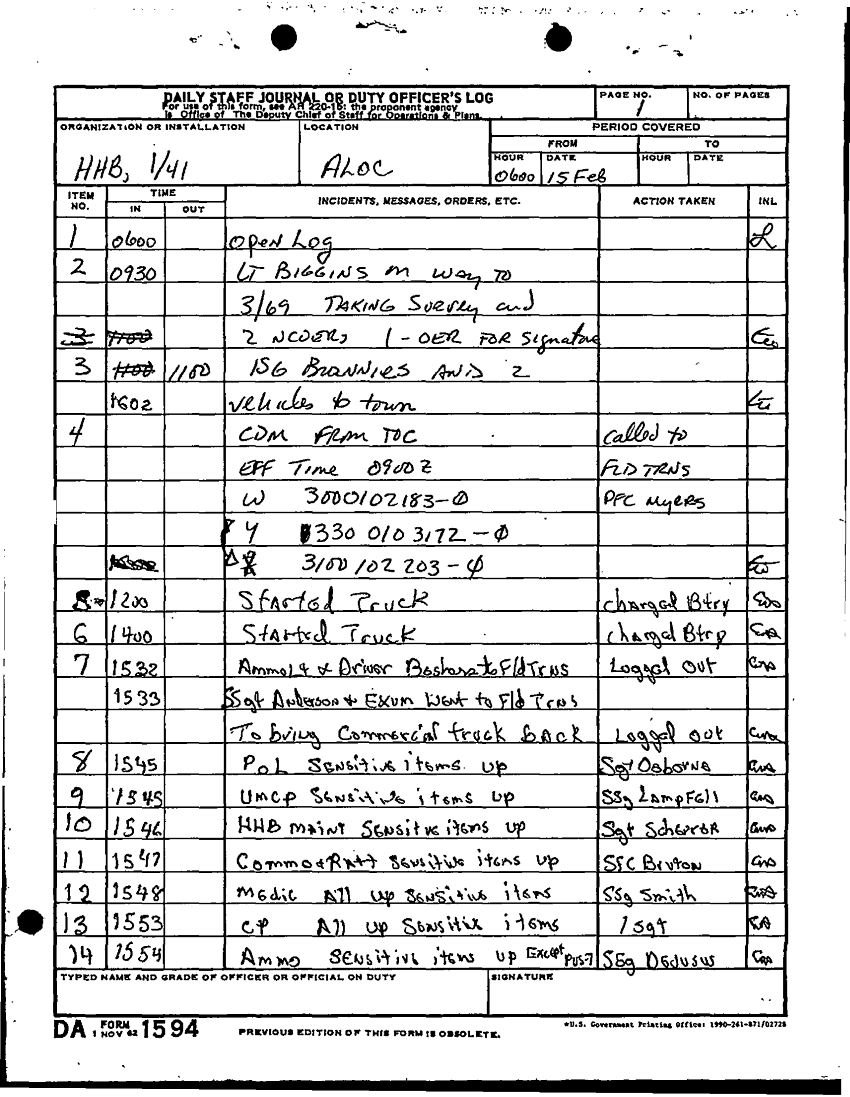 DAILY STAFF JOURNAL OR DUTY OFFICER'S LOG
For use of this form, see AR 220-15; the proponent agency
is Office of The Deputy Chief of Staff for Operations & Plans.
PAGE NO.
1
NO. OF PAGES
ORGANIZATION OR INSTALLATION
HHB, 1/41
LOCATION
ALOC
PERIOD COVERED
FROM TO
HOUR DATE HOUR DATE
0600 15 Feb
ITEM NO. TIME IN OUT INCIDENTS, MESSAGES, ORDERS, ETC. ACTION TAKEN INL
1 0600 Open Log
2 0930 LT BIGGINS on way to
3/69 TAKING Survey and
3 1100 2 NCOERs 1-OER FOR Signature
3 1100 1150 1SG BRANNIES AND 2
1602 vehicles to town
4 COM FROM TOC called to
EFF Time 0900Z FLD TRNS
W 3000102183-0 PFC MYERS
Y 330 010 3172-0
3100102203-0
5 1200 Started Truck charged Btry
6 1400 Started Truck charged Btry
7 1532 Ammo & Driver to Fld Trns Logged out
1533 SSgt Anderson & Exum Went to Fld Trns
To bring Commercial truck back Logged out
8 1545 POL Sensitive items up Sgt Osborne
9 1545 UMCP Sensitive items up SSg Lampfell
10 1546 HHB maint Sensitve items up Sgt
11 1547 Commo & Ratt Sensitive items up SFC Bruton
12 1548 Medic All up Sensitive items SSg Smith
13 1553 CP All up Sensitive items 1sgt
14 1554 Ammo Sensitive items up Except SSg Dejusus
TYPED NAME AND GRADE OF OFFICER OR OFFICIAL ON DUTY
SIGNATURE
DA FORM 1 NOV 62 1594
PREVIOUS EDITION OF THIS FORM IS OBSOLETE.
*U.S. Government Printing Office: 1990-261-871/02728